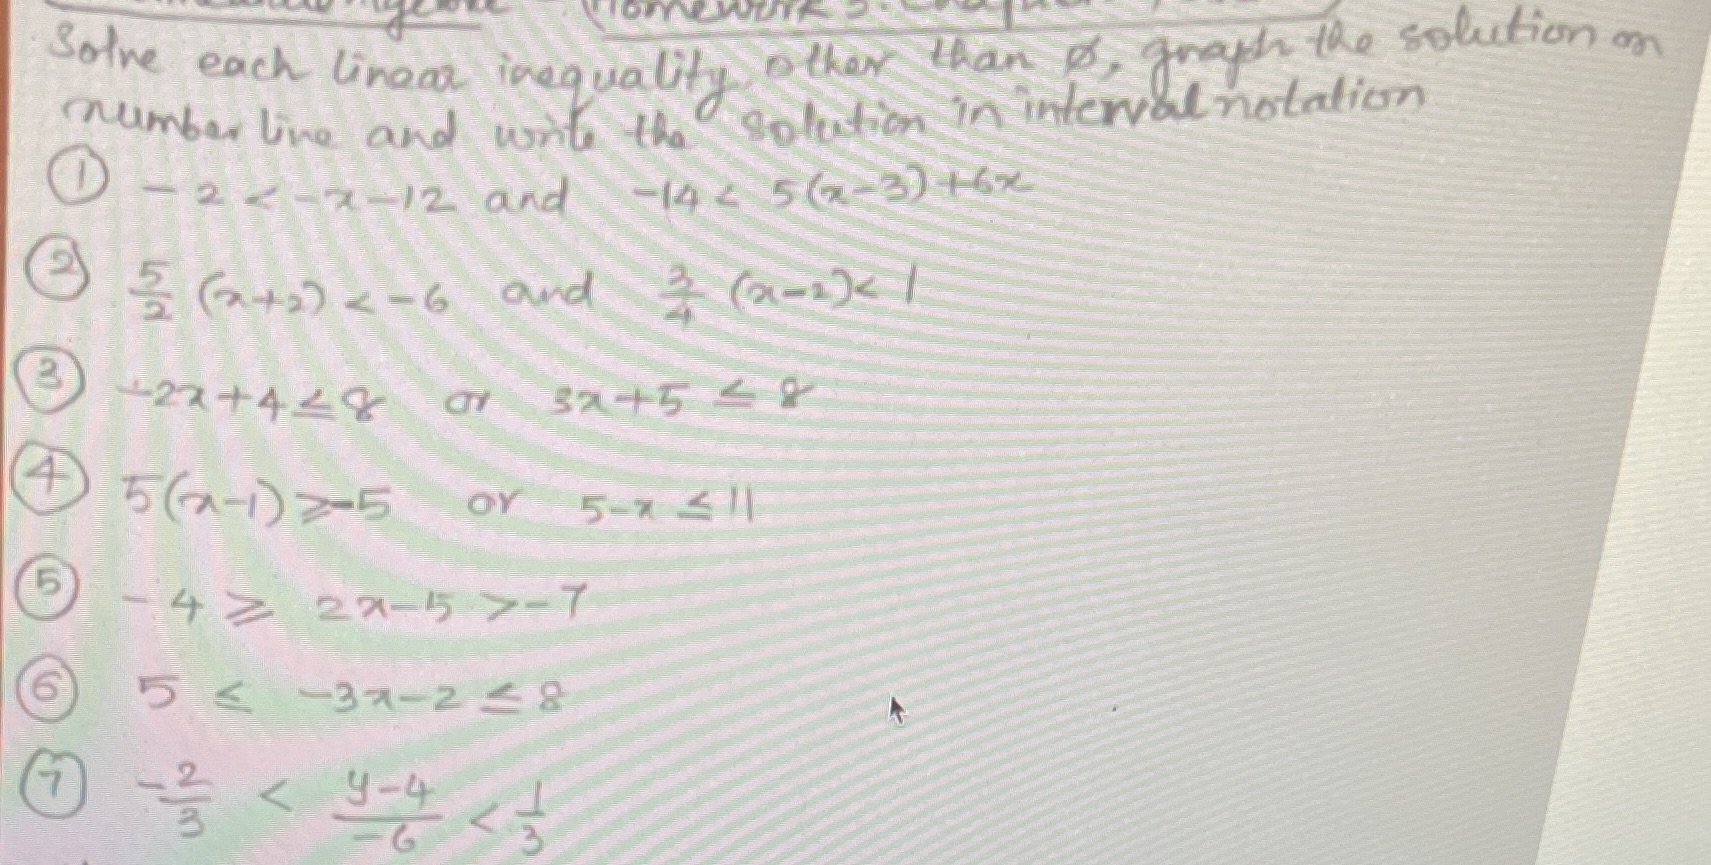 (Homework 3:
Solve each linear inequality other than ø, graph the solution on
number line and write the solution in interval notation
① -2 < -x-12 and -14 < 5(x-3)+6x
② 5/2 (x+2) < -6 and 3/4 (x-2) < 1
③ -2x+4 ≤ 8 or 3x+5 ≤ 8
④ 5(x-1) ≥ -5 or 5-x ≤ 11
⑤ -4 ≥ 2x-5 > -7
⑥ 5 ≤ -3x-2 ≤ 8
⑦ -2/3 < y-4/-6 < 1/3